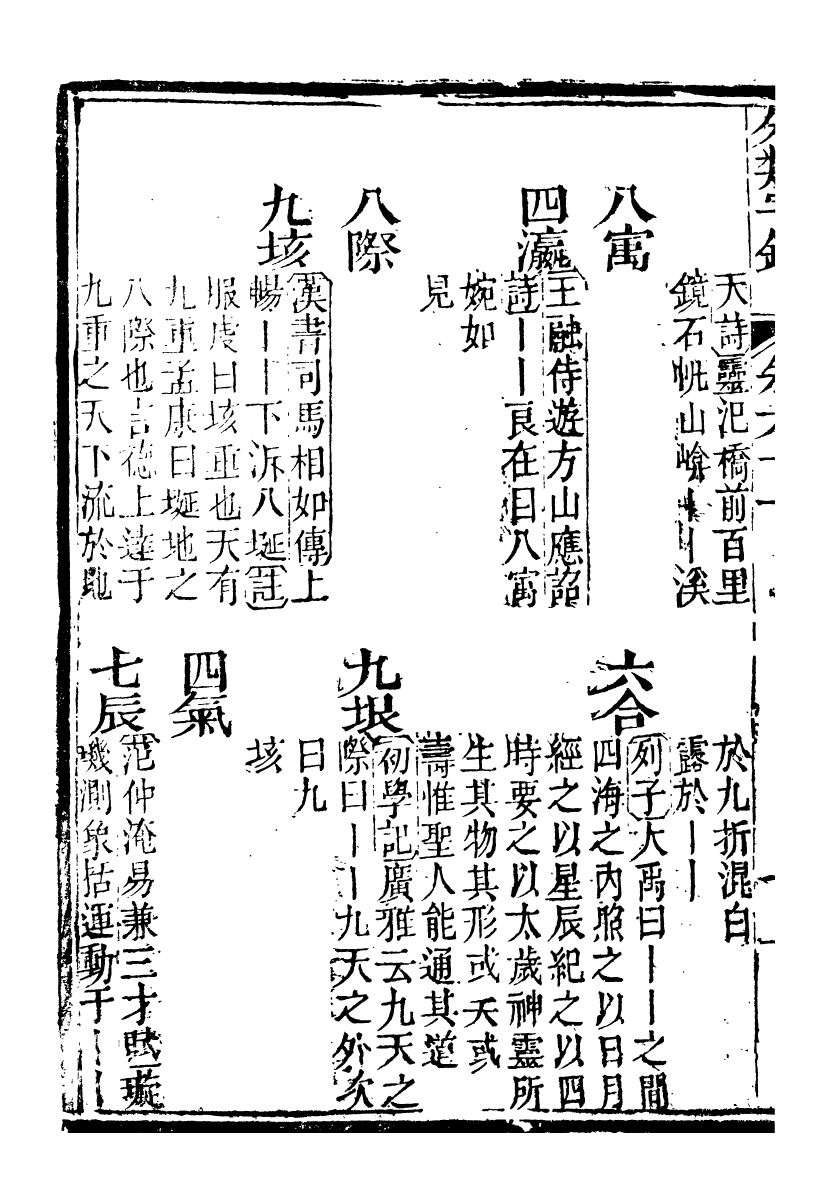 分類字錦
天詩靈汜橋前百里
鏡石帆山嶮丨丨溪
八㝢
四瀛
王融侍遊方山應詔
詩丨丨良在目八㝢
婉如
見
八際
九垓
漢書司馬相如傳上
暢丨丨下泝八埏註
服虔曰垓重也天有
九重孟康曰埏地之
八際也言德上達于
九重之天下流於地
於九折混白
露於丨丨
六合
列子大禹曰丨丨之間
四海之內照之以日月
經之以星辰紀之以四
時要之以太歲神靈所
生其物其形或夭或
壽惟聖人能通其道
九垠
初學記廣雅云九天之
際曰丨丨九天之外次
曰九
垓
四氣
七辰
范仲淹易兼三才賦璇
璣測象括運動于丨丨